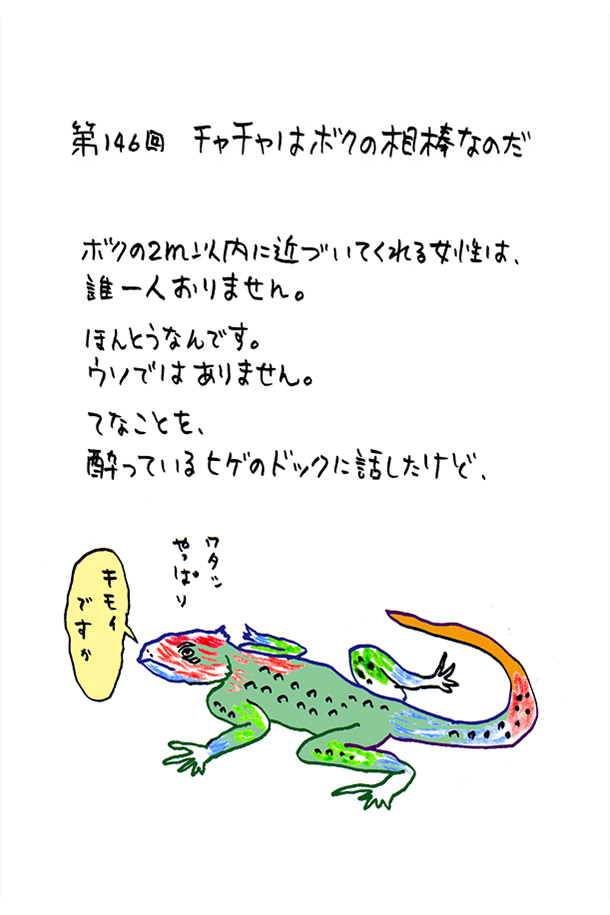 第146回 チャチャはボクの相棒なのだ
ボクの2m以内に近づいてくれる女性は、
誰一人おりません。
ほんとうなんです。
ウソではありません。
てなことを、
酔っているヒゲのドックに話したけど、
ワタシ
やっぱり
キモイ
ですか